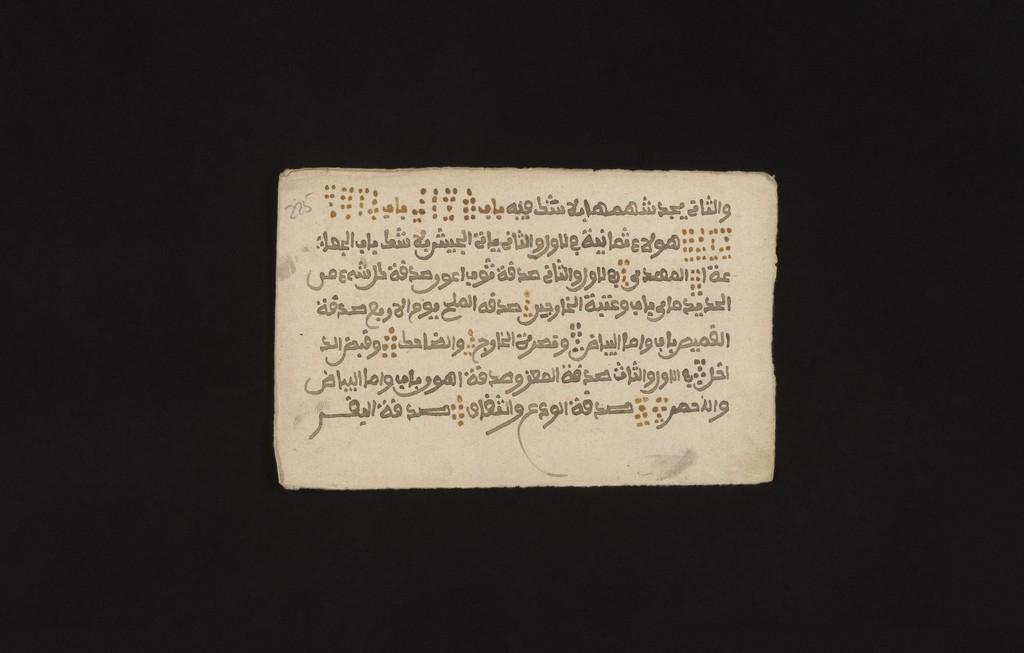 225
والثاني يجد شهمهما بلا شط فيه باب باب
هولاء ثمانية في الاول والثاني ياتى الجيش بلا شط باب الجما
عة المهدى في الاول والثاني صدقة ثوب اعور صدقة كل شيء من
الحديد باب وعتبة الخارجين صدقة الملح يوم الاربع صدقة
القميص باب واما البياض وقصرة الخارج والضاحك وقبض الد
اخل في الاول والثالث صدقة المعز وصدقة باب واما البياض
والاحمر صدقة الودع والثقاف صدقة البقر